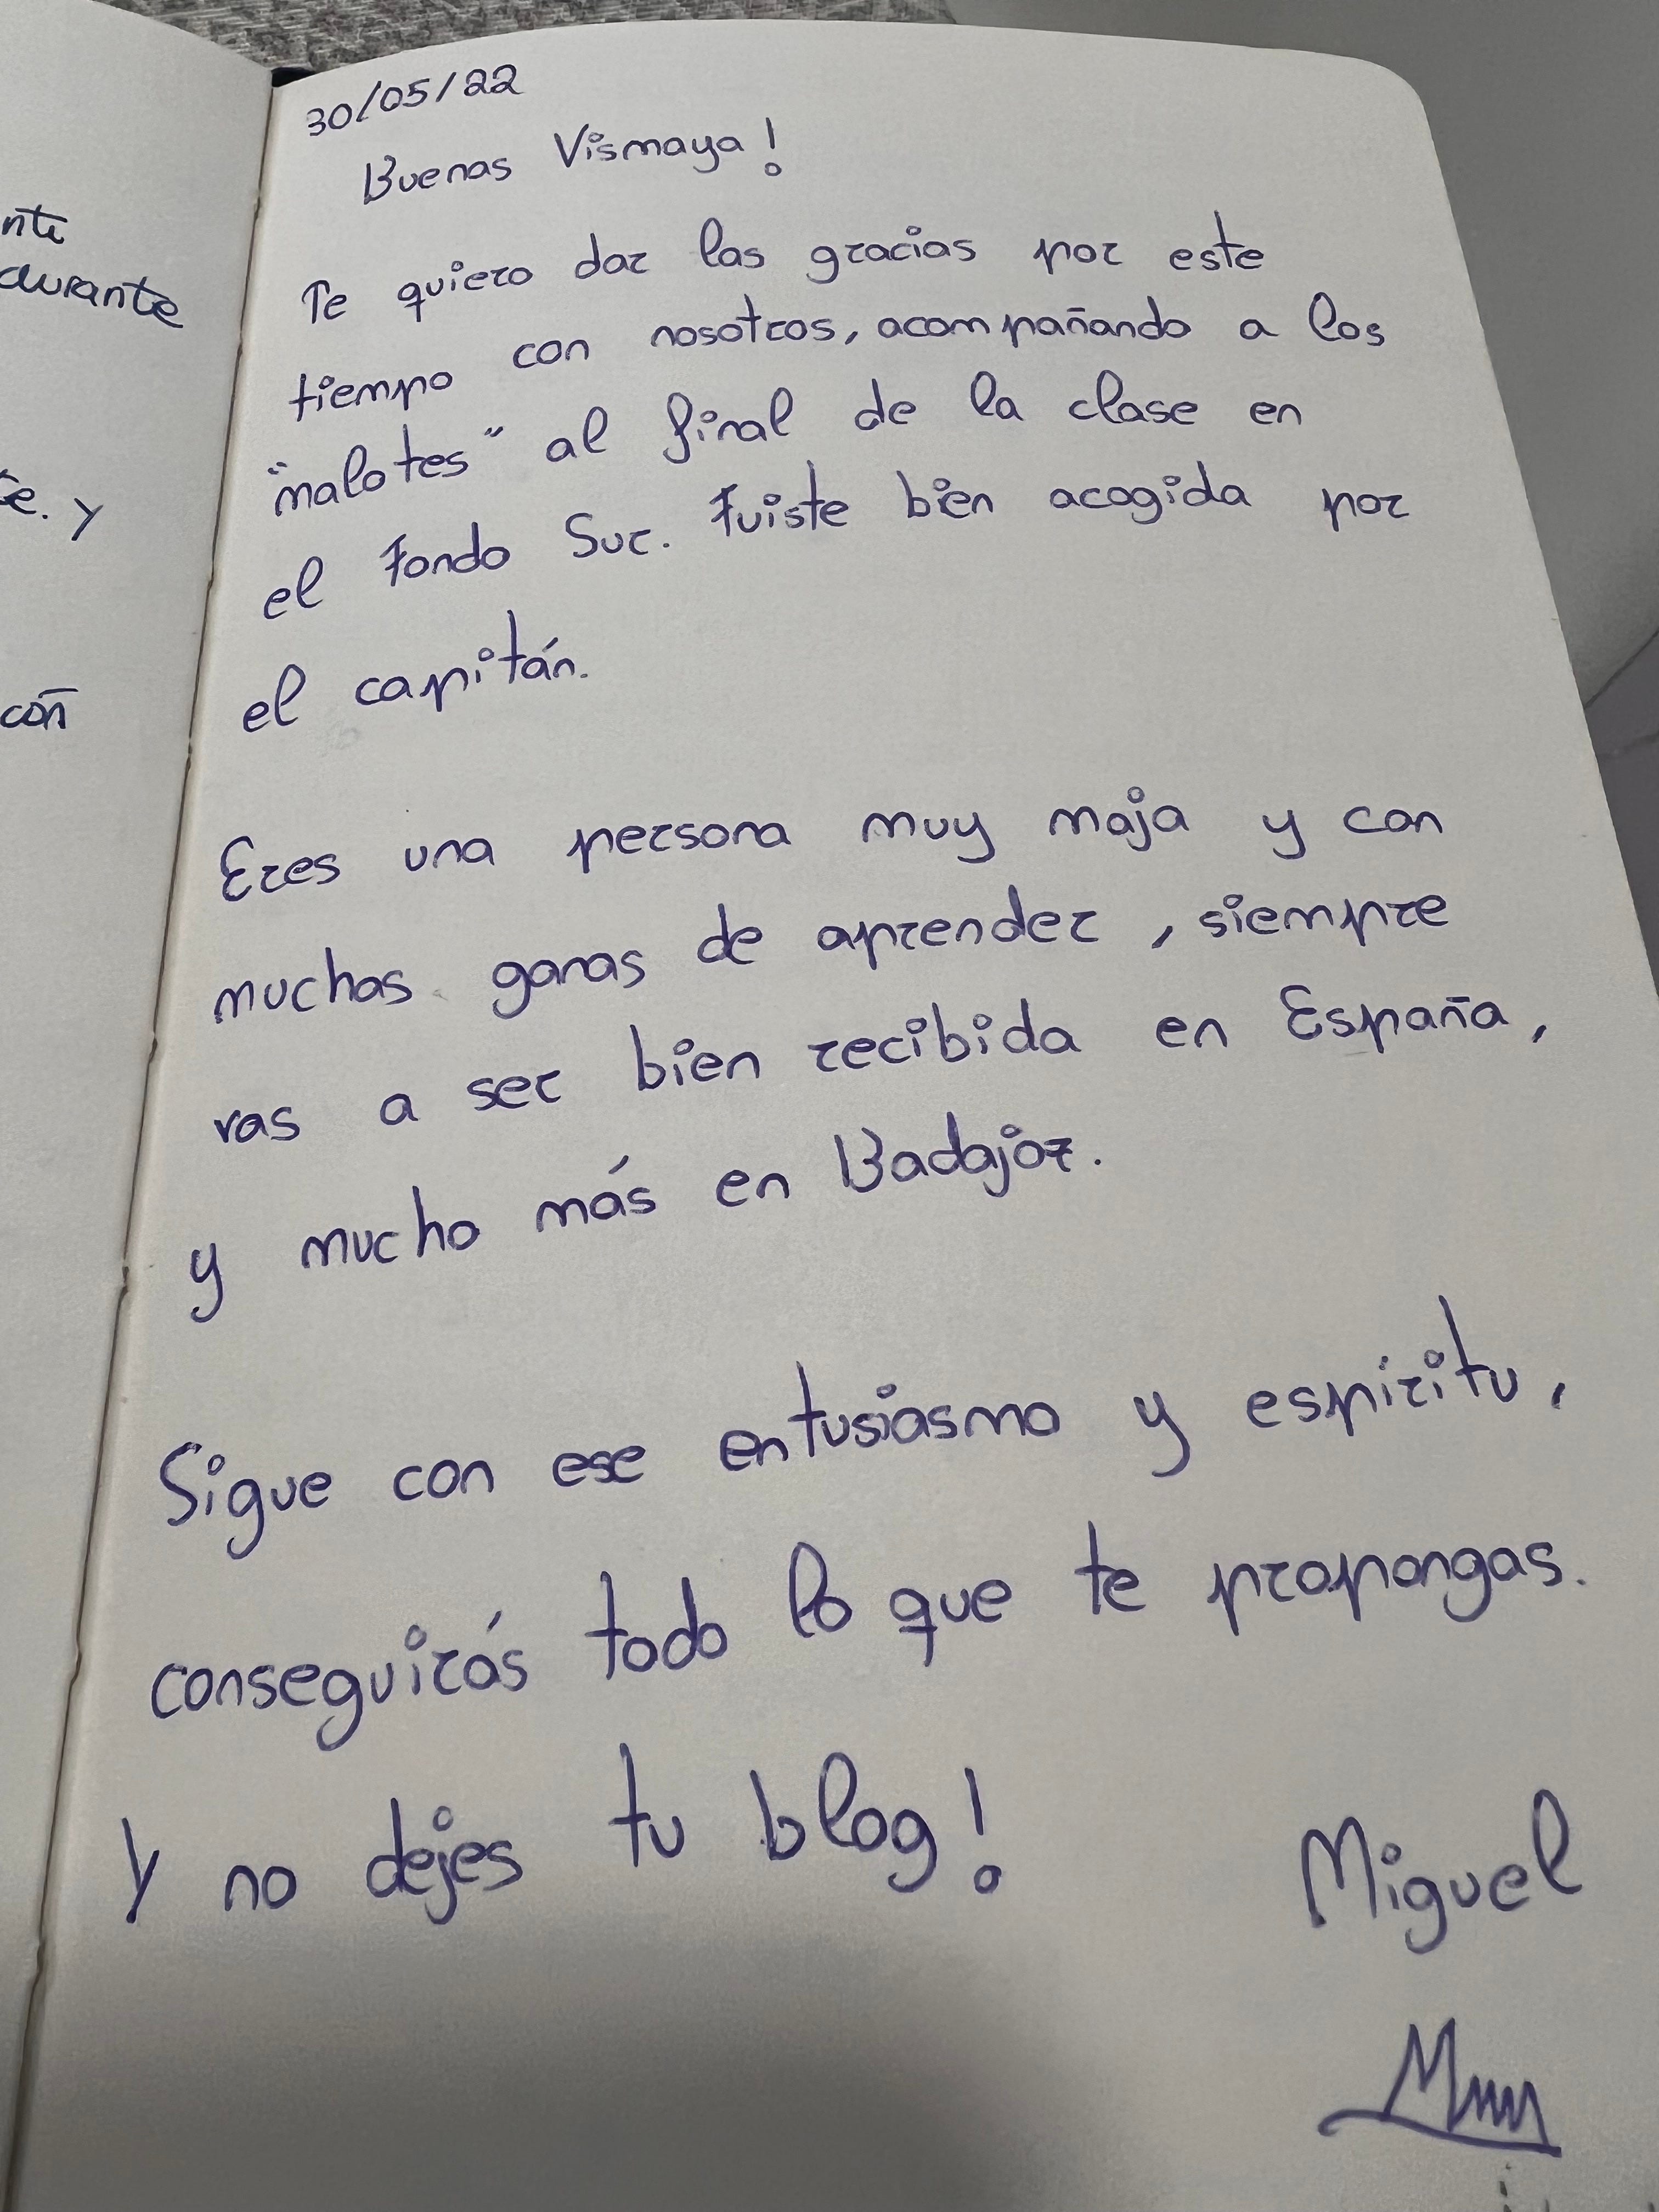 nte
durante
e. y
con
30/05/22
Buenas Vismaya!
Te quiero dar las gracias por este
tiempo con nosotros, acompañando a los
"malotes" al final de la clase en
el Fondo Sur. Fuiste bien acogida por
el capitán.
Eres una persona muy maja y con
muchas ganas de aprender, siempre
vas a ser bien recibida en España,
y mucho más en Badajoz.
Sigue con ese entusiasmo y espiritu,
conseguirás todo lo que te propongas.
Y no dejes tu blog!
Miguel